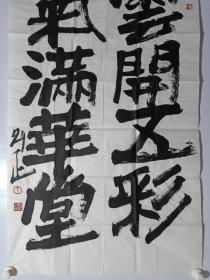 雲開五彩
氣滿華堂